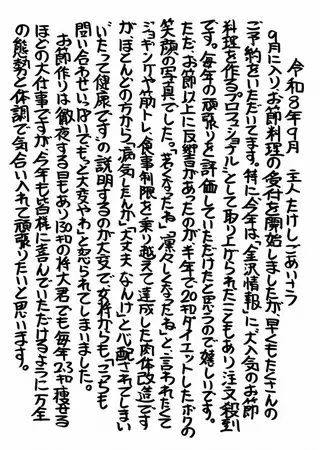 令和8年9月　主人たけしごあいさつ
9月に入り、お節料理の受付を開始しましたが、早くもたくさんの
ご予約をいただいてます。特に今年は、「金沢情報」に、大人気のお節
料理を作るプロフェッショナルとして取り上げられたこともあり、注文殺到
です。毎年の頑張りを評価していただけたと思うので嬉しいです。
ただ、お節以上に反響があったのが、半年で20キロダイエットしたボクの
笑顔の写真でした。「若くなったね」「凛々しくなったね」と言われたくて
ジョギングや筋トレ、食事制限を乗り越えて達成した肉体改造です
が、ほとんどの方から「病気したんか」「大丈夫なんけ」と心配されてしまい
「いたって健康です」の説明するのが大変で、女将からも「こっちも
問い合わせいっぱいでもっと大変やわ」と怒られてしまいました。
お節作りは徹夜する日もあり130キロの時大君でも毎年2、3キロ痩せる
ほどの大仕事ですが、今年も皆様に喜んでいただけるように万全
の態勢と体調で気合い入れて頑張りたいと思います。